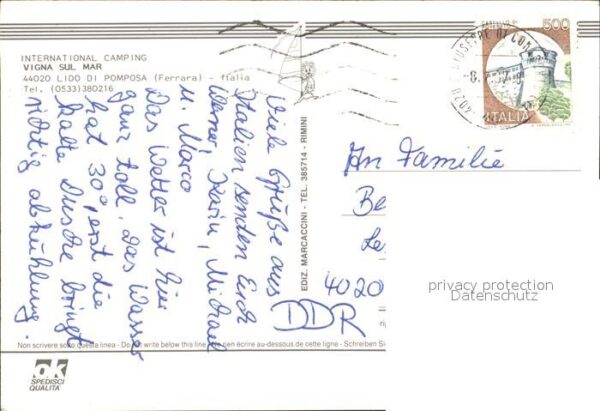 INTERNATIONAL CAMPING
VIGNA SUL MAR
44020 LIDO DI POMPOSA (Ferrara) - Italia
Tel. (0533)380216
Viele Grüße aus
Italien senden Euch
Werner, Karin, Michael
u. Marco
Das Wetter ist hier
ganz toll, das Wasser
hat 30°, erst die
kalte Dusche bringt
richtig abkühlung.
EDIZ. MARCACCINI - TEL. 385714 - RIMINI
500
ITALIA
An Familie
Be
Le
4020
DDR
privacy protection
Datenschutz
Non scrivere sotto questa linea - Do not write below this line - Ne rien écrire au-dessous de cette ligne - Schreiben Si
ok
SPEDISCI
QUALITÀ